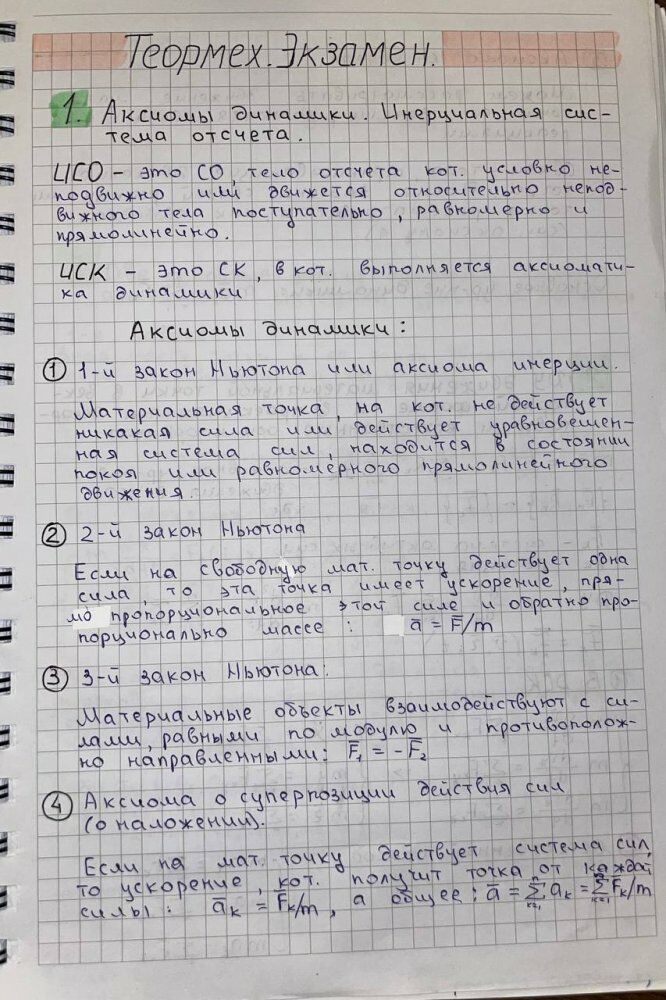 Теормех. Экзамен.
1. Аксиомы динамики. Инерциальная сис-
тема отсчета.
ИСО – это СО, тело отсчета кот. условно не-
подвижно или движется относительно непод-
вижного тела поступательно, равномерно и
прямолинейно.
ИСК – это СК, в кот. выполняется аксиомати-
ка динамики
Аксиомы динамики:
① 1-й закон Ньютона или аксиома инерции.
Материальная точка, на кот. не действует
никакая сила или действует уравновешен-
ная система сил, находится в состоянии
покоя или равномерного прямолинейного
движения.
② 2-й закон Ньютона
Если на свободную мат. точку действует одна
сила, то эта точка имеет ускорение, пря-
мо пропорциональное этой силе и обратно про-
порционально массе: a̅ = F̅/m
③ 3-й закон Ньютона:
Материальные объекты взаимодействуют с си-
лами, равными по модулю и противополож-
но направленными: F̅₁ = -F̅₂
④ Аксиома о суперпозиции действия сил
(о наложении).
Если на мат. точку действует система сил,
то ускорение, кот. получит точка от каждой
силы: a̅ₖ = F̅ₖ/m, а общее: a̅ = ∑ⁿₖ₌₁ a̅ₖ = ∑ⁿₖ₌₁ F̅ₖ/m